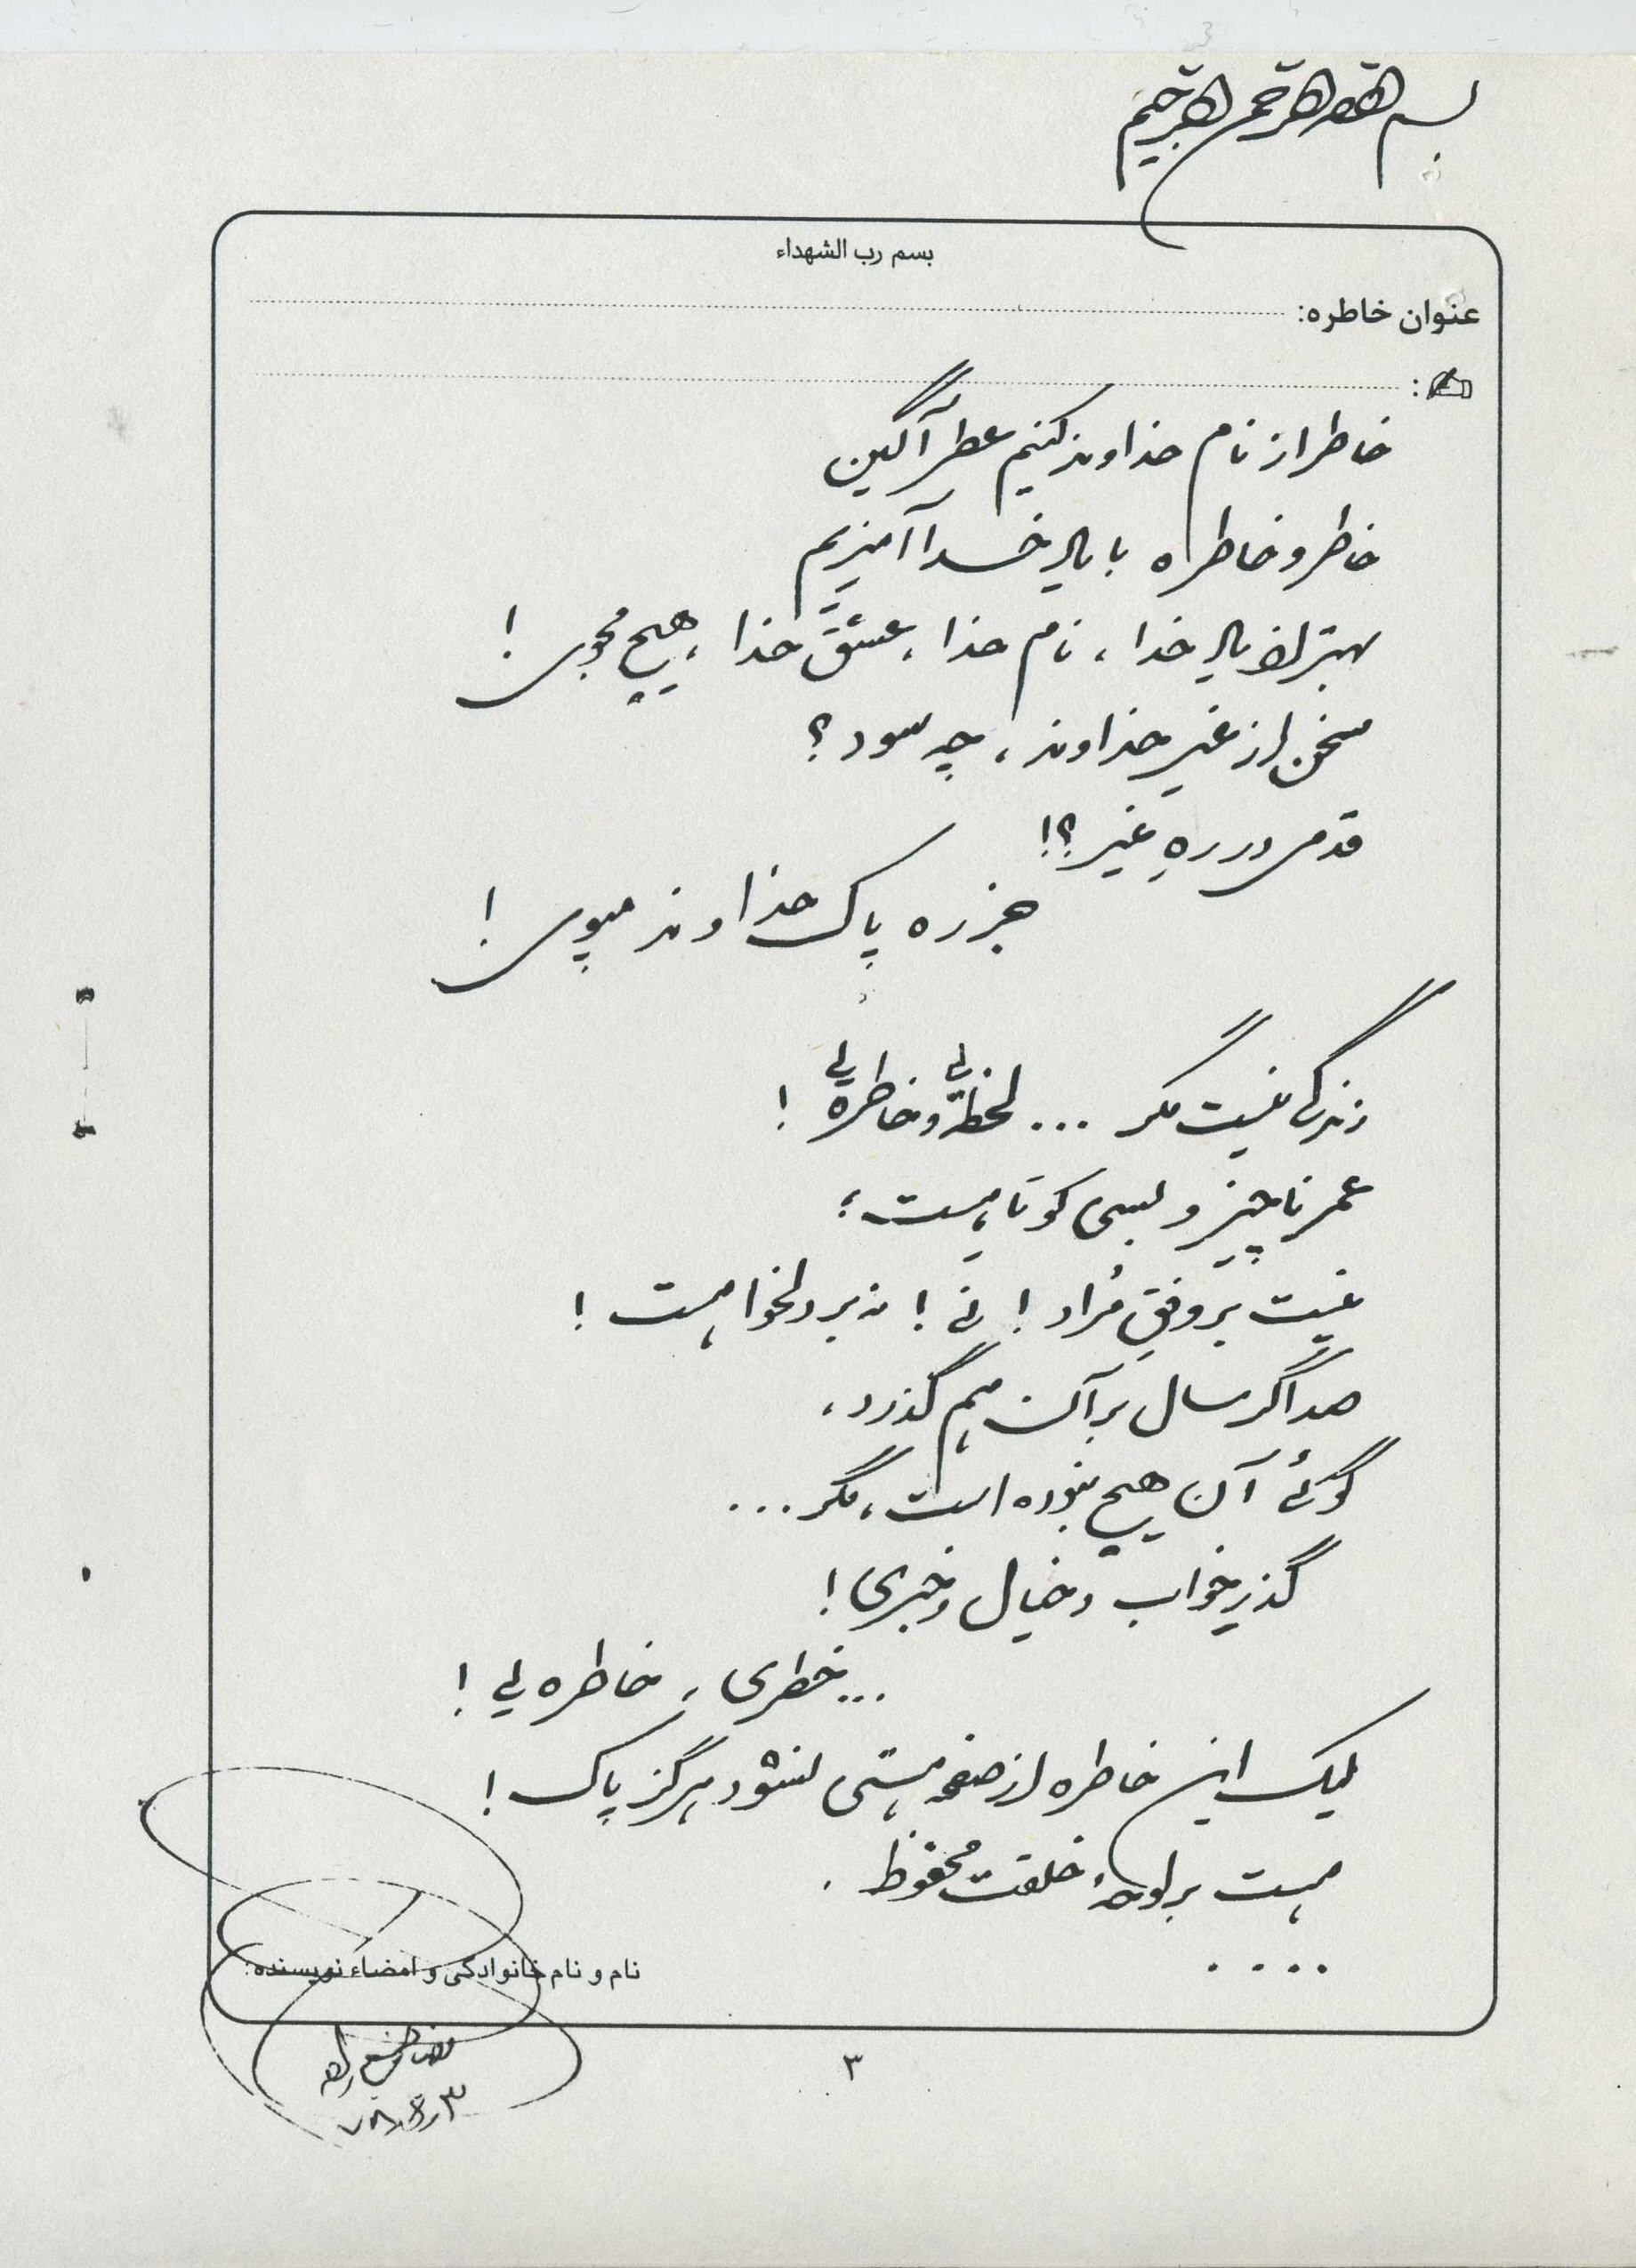 بسم الله الرحمن الرحیم
بسم رب الشهداء
عنوان خاطره:
خاطر از نام خداوند کنیم عطرآگین
خاطر و خاطره با یاد خدا آمیزیم
بهتر از یاد خدا، نام خدا، عشق خدا، هیچ مجوی!
سخن از غیر خداوند، چه سود؟
قدمی در رهِ غیر؟!
جز ره پاک خداوند مپوی!
زندگی نیست مگر ... لحظه‌یی و خاطره‌یی!
عمر ناچیز و بسی کوتاهست؛
نیست بر وفقِ مُراد! نی! نه بر دلخواهست!
صد اگر سال بر آن هم گذرد،
گوئی آن هیچ نبوده است، مگر...
گذرِ خواب و خیال و خبری!
...خطری، خاطره‌یی!
لیک این خاطره از صفحه هستی نشود هرگز پاک!
هست بر لوحهٔ خلقت محفوظ.
....
نام و نام خانوادگی و امضاء نویسنده:
۳